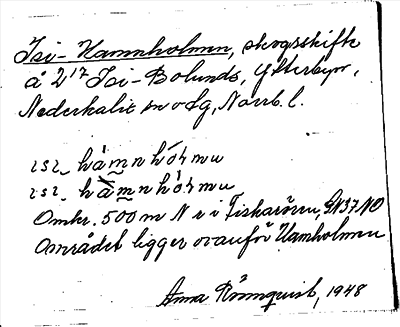 Isi-Hammholmen, skogsskifte
å 2¹⁷ Isi-Bolunds, Ytterbyn,
Nederkalix sn o fg, Norrb. l.
ısı_ hàmnhólmu
ısı_ hămnhólmu
Omkr. 500 m N r i Fiskarören, SN37NO
Området ligger ovanför Hamholmen.
Anna Rönnqvist, 1948